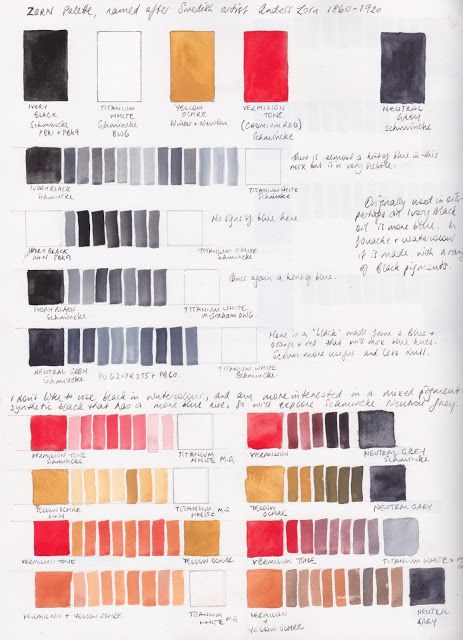 ZORN Palette, named after Swedish artist Anders Zorn 1860-1920
IVORY
BLACK
Schmincke
PBk1 + PBk9
TITANIUM
WHITE
Schmincke
PW6
YELLOW
OCHRE
Winsor + Newton
VERMILION
TONE
(CADMIUM RED)
Schmincke
NEUTRAL
GREY
Schmincke
IVORY BLACK
Schmincke
TITANIUM WHITE
Schmincke
There is almost a hint of blue in this
mix but it is very subtle.
IVORY BLACK
W+N PBk9
TITANIUM WHITE
Schmincke
No signs of blue here
Originally used in oils -
perhaps an Ivory Black
oil is more blue. In
gouache + watercolour
it is made with a range
of Black pigments.
IVORY BLACK
Schmincke
TITANIUM
WHITE
M.Graham PW6.
Once again a hint of blue.
NEUTRAL GREY
Schmincke
PO62 + PR255 + PB60.
TITANIUM WHITE
Schmincke.
Here is a 'black' made from a Blue +
orange + red that will mix blue hues.
Seems more useful and less dull.
I don't like to use black in watercolour, and am more interested in a mixed pigment
synthetic black that has a more blue hue, so will explore Schmincke Neutral Grey.
VERMILION TONE
Schmincke
TITANIUM
WHITE M.G.
VERMILION
NEUTRAL GREY
Schmincke
YELLOW OCHRE
W+N
TITANIUM
WHITE M.G
YELLOW
OCHRE
NEUTRAL GREY
VERMILION TONE
YELLOW OCHRE
VERMILION TONE
TITANIUM WHITE +
VERMILION + YELLOW OCHRE
TITANIUM
WHITE M.G
VERMILION
+
YELLOW OCHRE
NEUTRAL
GREY